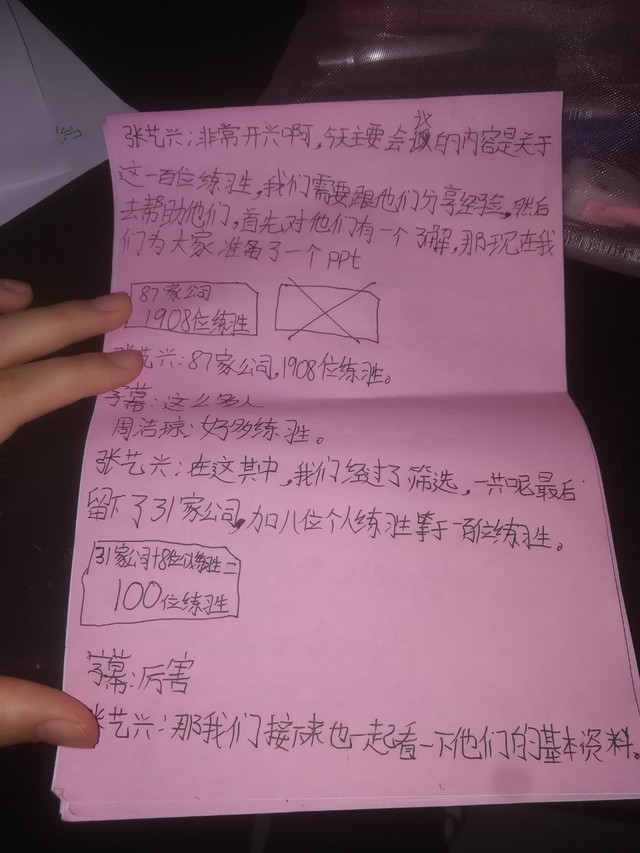 张艺兴:非常开兴啊,今天主要会议的内容是关于
这一百位练习生,我们需要跟他们分享经验,然后
去帮助他们,首先对他们有一个了解,那现在我
们为大家准备了一个ppt
87家公司
1908位练习生
张艺兴:87家公司,1908位练习生。
字幕:这么多人
周洁琼:好多练习生。
张艺兴:在这其中,我们经过了筛选,一共呢最后
留下了31家公司,加八位个人练习生等于一百位练习生。
31家公司+8位个人练习生=
100位练习生
字幕:厉害
张艺兴:那我们接下来也一起看一下他们的基本资料。